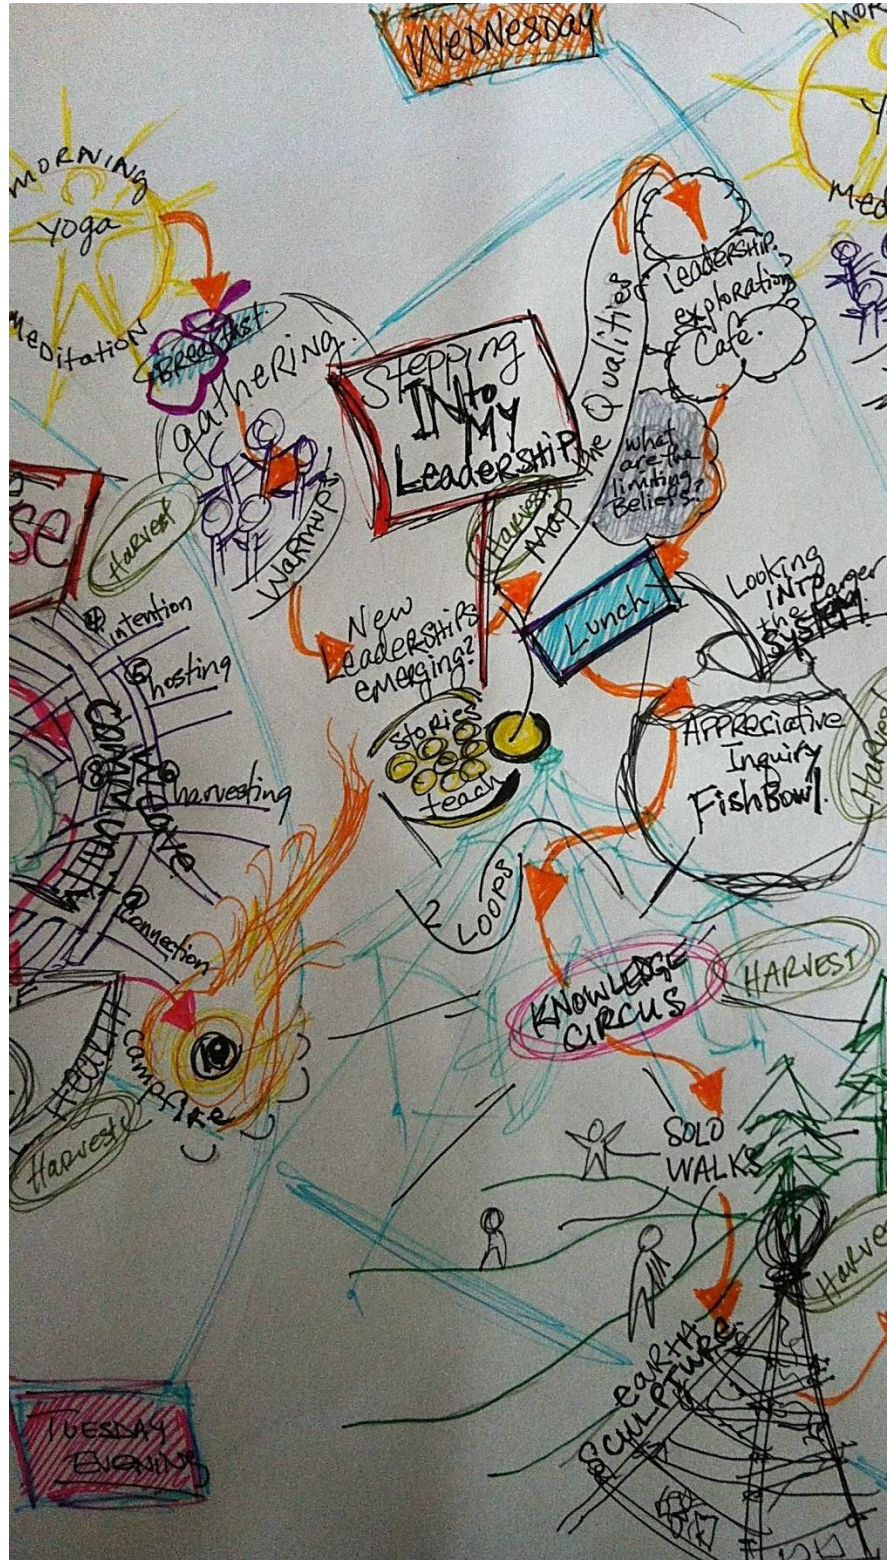 WEDNESDAY
MORNING
Yoga
MEDITATION
BREAKFAST
gathering
Warmups
Harvest
Stepping
INto
MY
LeadershiP
Harvest
Map
the Qualities
Leadership
exploration
Cafe.
what
are the
limiting
Beliefs?
Lunch
New
Leaderships
emerging?
Stories
teach
2 Loops
Looking
INTO
the Larger
SYSTEM!
APPReciative
Inquiry
FishBowl.
Harvest
KNOWLEDGE
CIRCUS
HARVEST
SOLO
WALKS
Harvest
earth
SCULPTURE
se
intention
hosting
harvesting
connection
Weave
COMMUNITY
campfire
10
Harvest
TUESDAY
EVENING